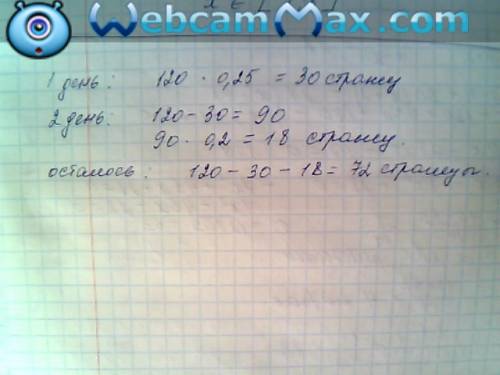 WebcamMax.com
1 день: 120 · 0,25 = 30 страниц
2 день: 120 - 30 = 90
90 · 0,2 = 18 страниц.
осталось: 120 - 30 - 18 = 72 страницы.